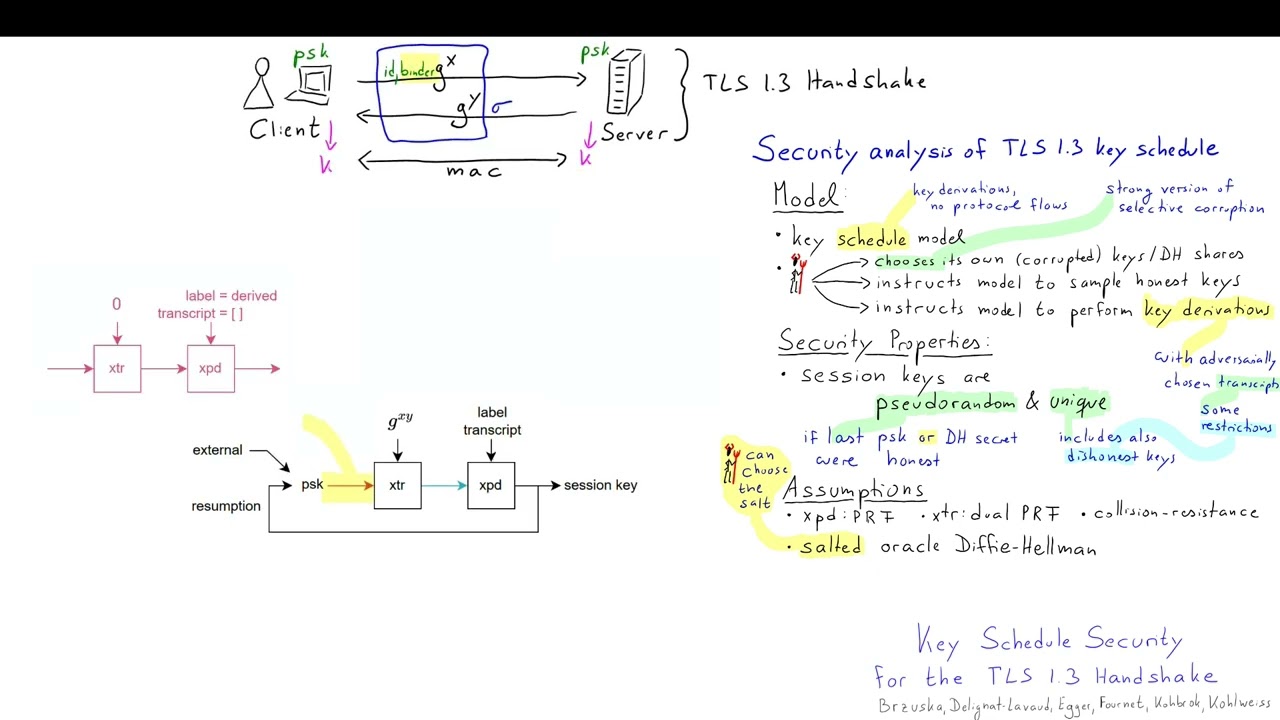 psk
psk
id, binder g^x
g^y σ
TLS 1.3 Handshake
Client
Server
k
k
mac
Security analysis of TLS 1.3 key schedule
Model:
key derivations,
no protocol flows
strong version of
selective corruption
• key schedule model
• chooses its own (corrupted) keys/DH shares
instructs model to sample honest keys
instructs model to perform key derivations
with adversarially
chosen transcipts
some
restrictions
Security Properties:
• session keys are
pseudorandom & unique
if last psk or DH secret
were honest
includes also
dishonest keys
can
choose
the
salt
Assumptions
• xpd: PRF • xtr: dual PRF • collision-resistance
• salted oracle Diffie-Hellman
0
label = derived
transcript = [ ]
xtr
xpd
g^xy
label
transcript
external
psk
xtr
xpd
session key
resumption
Key Schedule Security
for the TLS 1.3 Handshake
Brzuska, Delignat-Lavaud, Egger, Fournet, Kohbrok, Kohlweiss